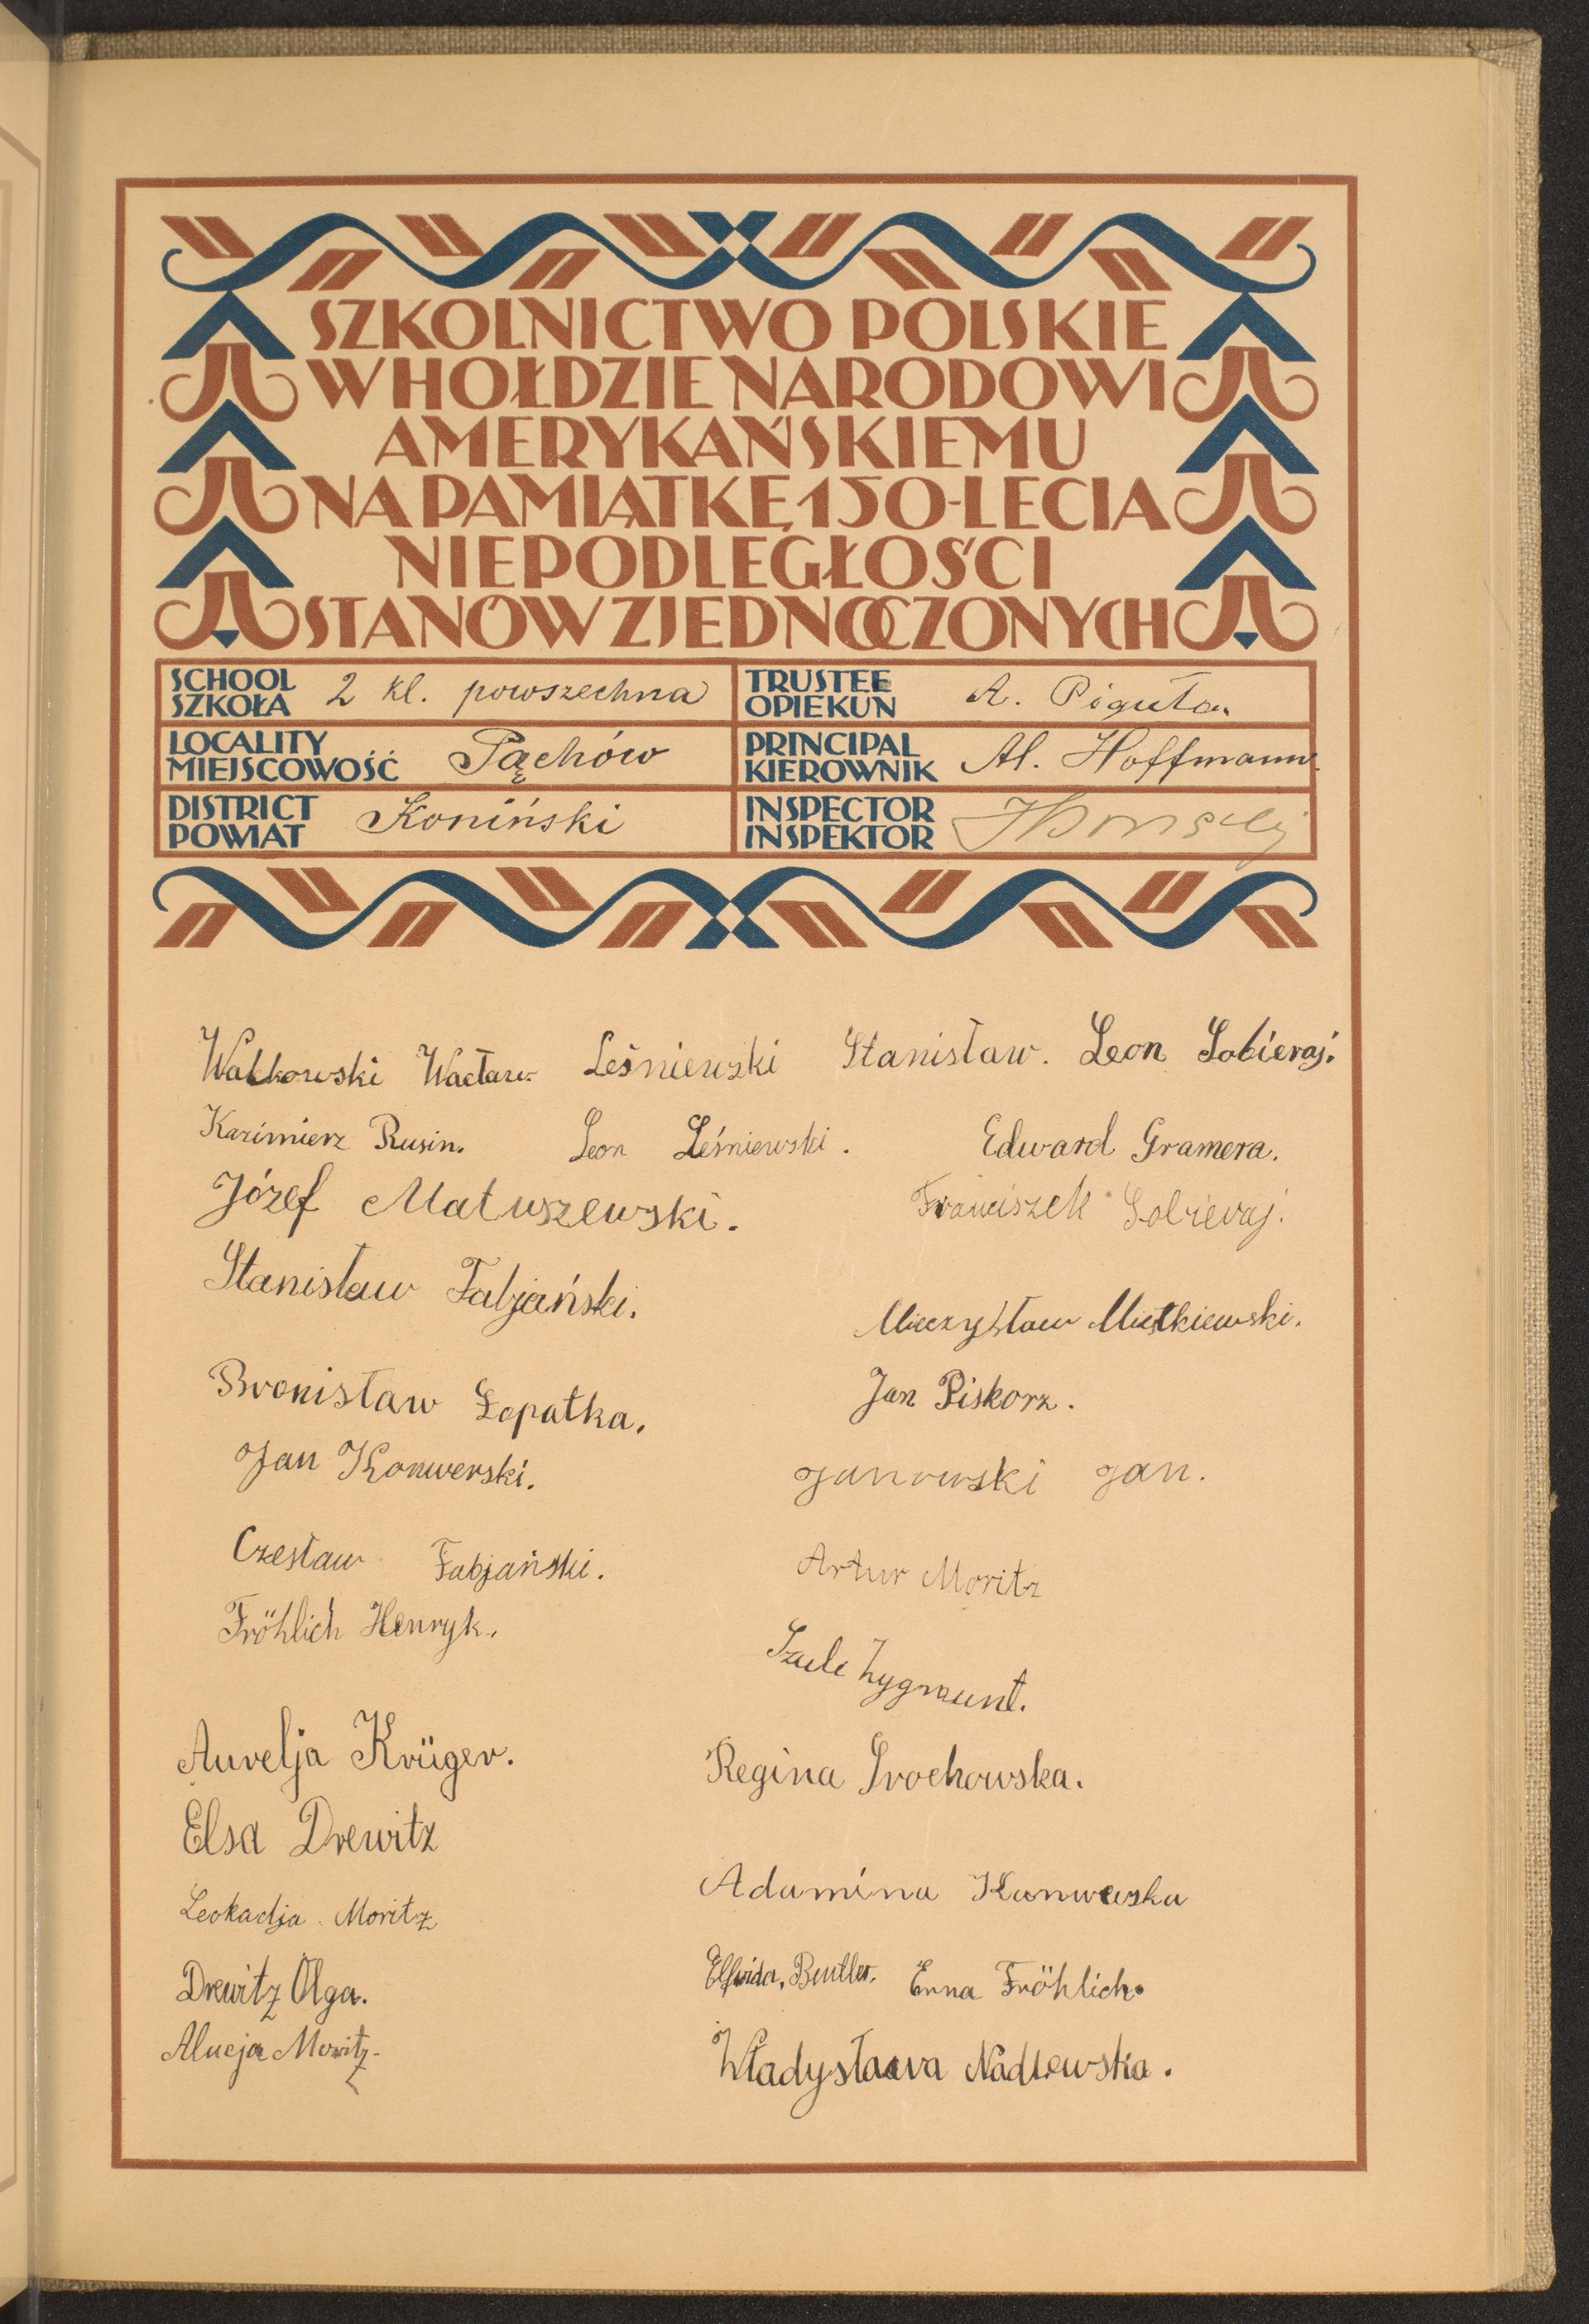 SZKOLNICTWO POLSKIE
W HOŁDZIE NARODOWI
AMERYKAŃSKIEMU
NA PAMIĄTKĘ 150-LECIA
NIEPODLEGŁOŚCI
STANÓW ZJEDNOCZONYCH
SCHOOL SZKOŁA 2 kl. powszechna
TRUSTEE OPIEKUN A. Piguła
LOCALITY MIEJSCOWOŚĆ Pąchów
PRINCIPAL KIEROWNIK Al. Hoffmann
DISTRICT POWIAT Koniński
INSPECTOR INSPEKTOR
Walkowski Wacław Leśniewski Stanisław. Leon Sobieraj.
Kazimierz Rusin. Leon Leśniewski. Edward Gramera.
Józef Matuszewski. Franciszek Sobieraj.
Stanisław Fabjański.
Mieczysław Mietkiewski.
Bronisław Łopatka. Jan Piskorz.
Jan Konwerski. Janowski Jan.
Czesław Fabjański. Artur Moritz
Fröhlich Henryk. Szulc Zygmunt.
Aurelja Krüger. Regina Grochowska.
Elsa Drewitz
Leokadja Moritz Adamina
Drewitz Olga. Elfrida, Beutler. Erna Fröhlich.
Alucja Moritz. Władysława Nadlewska.